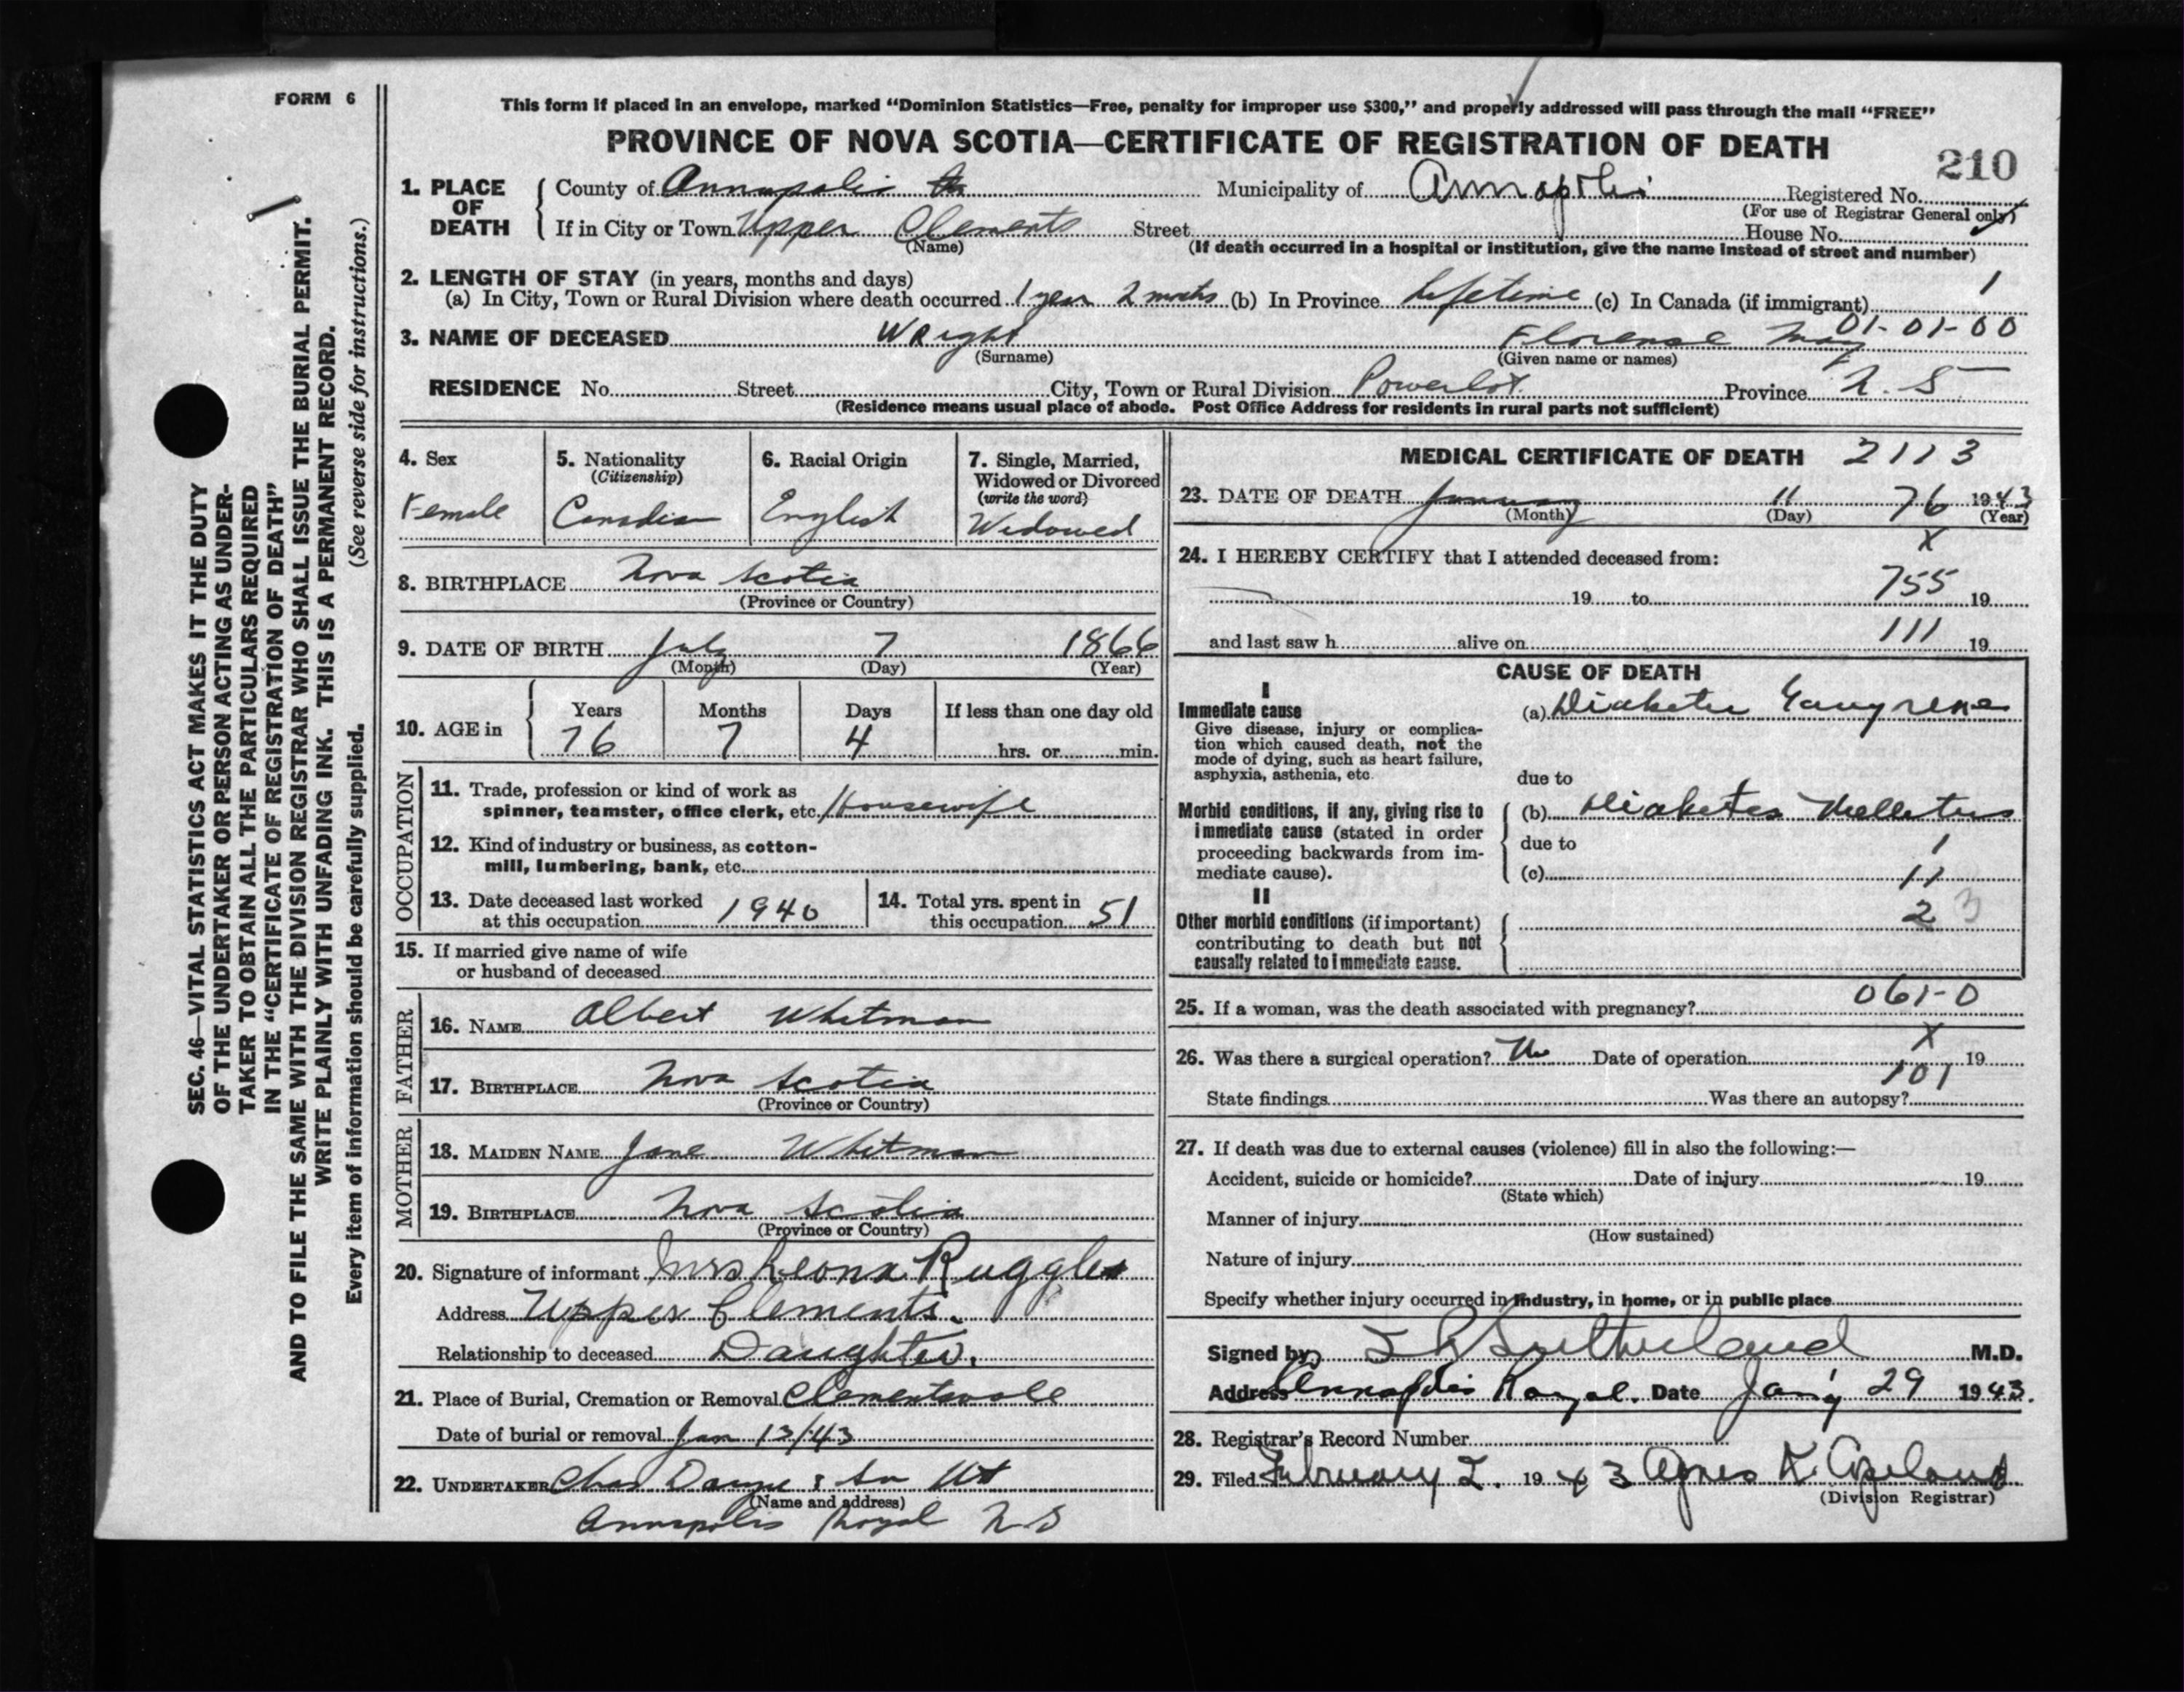 FORM 6
This form if placed in an envelope, marked “Dominion Statistics—Free, penalty for improper use $300,” and properly addressed will pass through the mail “FREE”
PROVINCE OF NOVA SCOTIA—CERTIFICATE OF REGISTRATION OF DEATH
210
1. PLACE OF DEATH
County of Annapolis Municipality of Annapolis Registered No.
(For use of Registrar General only)
If in City or Town Upper Clements Street House No.
(Name) (If death occurred in a hospital or institution, give the name instead of street and number)
2. LENGTH OF STAY (in years, months and days) 1
(a) In City, Town or Rural Division where death occurred 1 year 2 months (b) In Province Lifetime (c) In Canada (if immigrant)
01-01-00
3. NAME OF DECEASED Wright Florence May
(Surname) (Given name or names)
RESIDENCE No. Street City, Town or Rural Division Powerlot Province N. S
(Residence means usual place of abode. Post Office Address for residents in rural parts not sufficient)
4. Sex
Female
5. Nationality
(Citizenship)
Canadian
6. Racial Origin
English
7. Single, Married,
Widowed or Divorced
(write the word)
Widowed
8. BIRTHPLACE Nova Scotia
(Province or Country)
9. DATE OF BIRTH July 7 1866
(Month) (Day) (Year)
10. AGE in
Years Months Days If less than one day old
76 7 4 hrs. or min.
OCCUPATION
11. Trade, profession or kind of work as
spinner, teamster, office clerk, etc. Housewife
12. Kind of industry or business, as cotton-
mill, lumbering, bank, etc.
13. Date deceased last worked
at this occupation 1940
14. Total yrs. spent in
this occupation 51
15. If married give name of wife
or husband of deceased
FATHER
16. NAME Albert Whitman
17. BIRTHPLACE Nova Scotia
(Province or Country)
MOTHER
18. MAIDEN NAME Jane Whitman
19. BIRTHPLACE Nova Scotia
(Province or Country)
20. Signature of informant Mrs Leona Ruggles
Address Upper Clements.
Relationship to deceased Daughter.
21. Place of Burial, Cremation or Removal Clementsvale
Date of burial or removal Jan 13/43
22. UNDERTAKER Chas
(Name and address)
Annapolis Royal N S
MEDICAL CERTIFICATE OF DEATH 2113
23. DATE OF DEATH January 11 76 1943
(Month) (Day) (Year)
X
24. I HEREBY CERTIFY that I attended deceased from:
755
19 to 19
111
and last saw h alive on 19
CAUSE OF DEATH
I
Immediate cause
Give disease, injury or complica-
tion which caused death, not the
mode of dying, such as heart failure,
asphyxia, asthenia, etc.
(a) Diabetic Gangrene
due to
Morbid conditions, if any, giving rise to
immediate cause (stated in order
proceeding backwards from im-
mediate cause).
(b) Diabetes Mellitus
due to 1
(c) 11
II
2 3
Other morbid conditions (if important)
contributing to death but not
causally related to immediate cause.
061-0
25. If a woman, was the death associated with pregnancy?
X
26. Was there a surgical operation? No Date of operation 19
101
State findings Was there an autopsy?
27. If death was due to external causes (violence) fill in also the following:—
Accident, suicide or homicide? Date of injury 19
(State which)
Manner of injury
(How sustained)
Nature of injury
Specify whether injury occurred in industry, in home, or in public place
Signed by Sutherland M.D.
Address Annapolis Royal. Date Jan'y 29 1943.
28. Registrar's Record Number
29. Filed February 2. 1943 Agnes Copeland
(Division Registrar)
SEC. 46—VITAL STATISTICS ACT MAKES IT THE DUTY
OF THE UNDERTAKER OR PERSON ACTING AS UNDER-
TAKER TO OBTAIN ALL THE PARTICULARS REQUIRED
IN THE “CERTIFICATE OF REGISTRATION OF DEATH”
AND TO FILE THE SAME WITH THE DIVISION REGISTRAR WHO SHALL ISSUE THE BURIAL PERMIT.
WRITE PLAINLY WITH UNFADING INK. THIS IS A PERMANENT RECORD.
Every item of information should be carefully supplied. (See reverse side for instructions.)